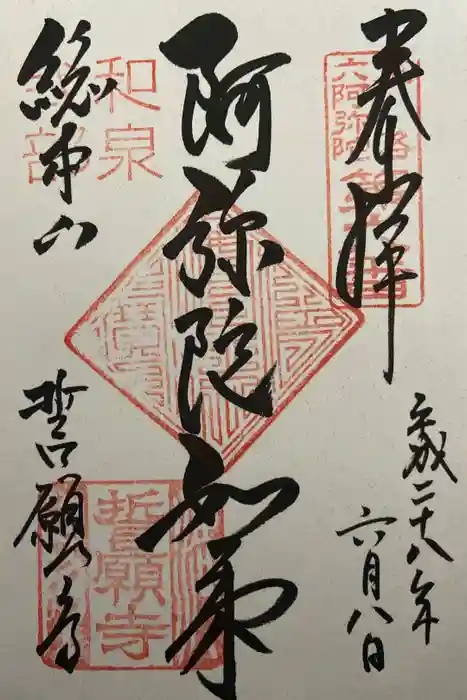 奉拝
洛陽
六阿弥陀
第六番
平成二十八年
六月八日
阿弥陀如来
和泉
式部
総本山
誓願寺
誓願寺